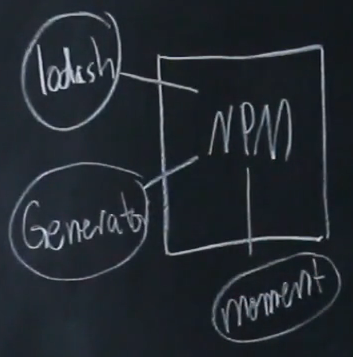 lodash
NPM
Generator
moment